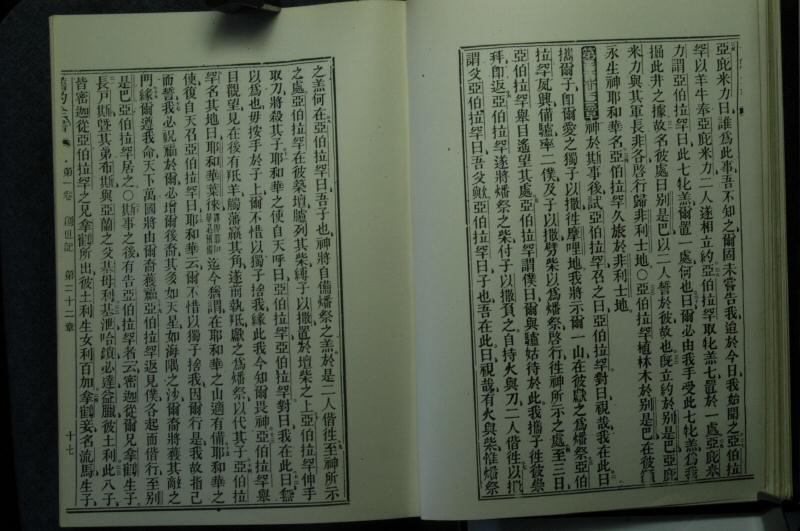 亞庇米力曰誰爲此事吾不知之爾固未嘗告我迨於今日我始聞之亞伯拉
罕以羊牛奉亞庇米力二人遂相立約亞伯拉罕取牝羔七置於一處亞庇米
力謂亞伯拉罕曰此七牝羔爾置一處何也曰爾必由我手受此七牝羔爲我
掘此井之據故名彼處曰別是巴以二人誓於彼故也旣立約於別是巴亞庇
米力與其軍長非各啓行歸非利士地〇亞伯拉罕植林木於別是巴在彼籲
永生神耶和華名亞伯拉罕久旅於非利士地
第二十二章神於斯事後試亞伯拉罕召之曰亞伯拉罕對曰視哉我在此曰
攜爾子卽爾愛之獨子以撒往摩哩地我將示爾一山在彼獻之爲燔祭亞伯
拉罕夙興備驢率二僕及子以撒劈柴以爲燔祭啓行往神所示之處至三日
亞伯拉罕舉目遙望其處亞伯拉罕謂僕曰爾與驢姑待於此我攜子往彼崇
拜卽返亞伯拉罕遂將燔祭之柴付子以撒負之自持火與刀二人偕往以撒
謂父亞伯拉罕曰吾父歟亞伯拉罕曰子也吾在此曰視哉有火與柴惟燔祭
之羔何在亞伯拉罕曰吾子也神將自備燔祭之羔於是二人偕往至神所示
之處亞伯拉罕在彼築壇臚列其柴縛子以撒置於壇柴之上亞伯拉罕伸手
取刀將殺其子耶和華之使自天呼曰亞伯拉罕亞伯拉罕對曰我在此曰毋
以爲也毋按手於子上爾不惜以獨子捨我緣此我今知爾畏神亞伯拉罕舉
目觀望見在後有羝羊觸藩羸其角遂前執羝獻之爲燔祭以代其子亞伯拉
罕名其地曰耶和華葉徠迄今猶謂在耶和華之山適有備耶和華之
使復自天召亞伯拉罕曰耶和華云爾不惜以獨子捨我因爾行是我故指己
而誓我必祝福於爾必增爾後裔其多如天星如海隅之沙爾裔將獲其敵之
門緣爾遵我命天下萬國將由爾裔獲福亞伯拉罕返見僕各起而偕行至別
是巴亞伯拉罕居之〇斯事之後有告亞伯拉罕者云密迦從爾兄拿鶴生子
長戶斯曁其弟布斯與亞蘭之父基母利基泄哈鎖必達益臘彼土利此八子
皆密迦從亞伯拉罕之兄拿鶴所出彼土利生女利百加拿鶴妾名流馬生子
舊約全書 第一卷 創世記 第二十二章 十七